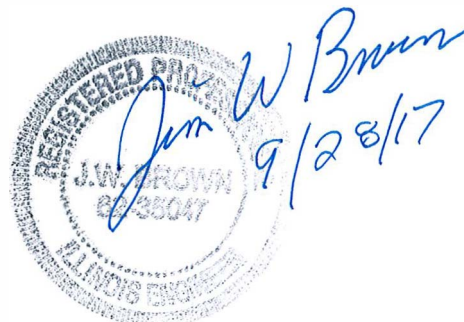 REGISTERED PROFESSIONAL
J.W. BROWN
62-35047
ILLINOIS ENGINEER
Jim W Brown
9/28/17